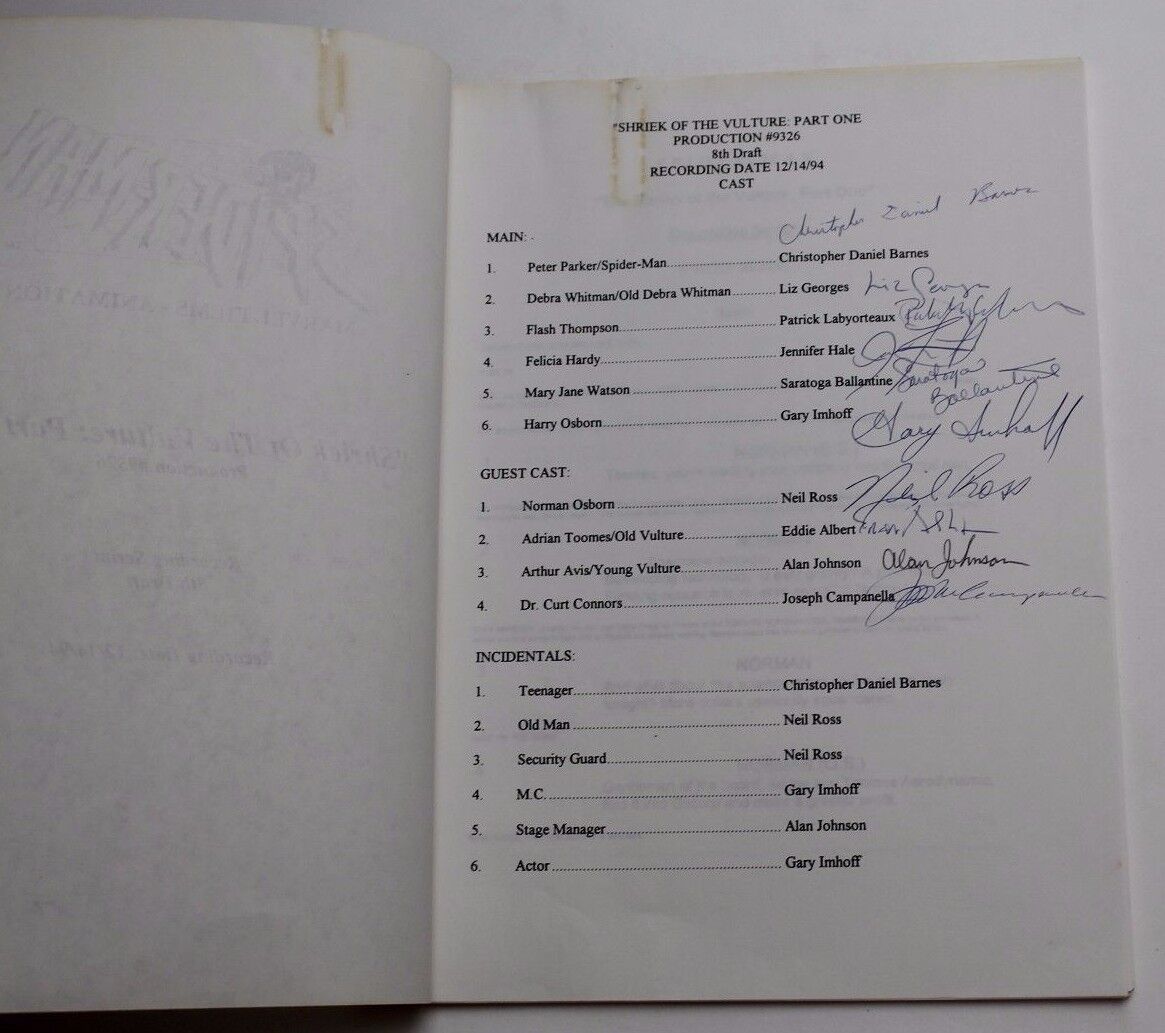 "SHRIEK OF THE VULTURE: PART ONE
PRODUCTION #9326
8th Draft
RECORDING DATE 12/14/94
CAST
Christopher Daniel Barnes
MAIN:
1. Peter Parker/Spider-Man Christopher Daniel Barnes
2. Debra Whitman/Old Debra Whitman Liz Georges Liz Georges
3. Flash Thompson Patrick Labyorteaux
4. Felicia Hardy Jennifer Hale
5. Mary Jane Watson Saratoga Ballantine Saratoga Ballantine
6. Harry Osborn Gary Imhoff Gary Imhoff
GUEST CAST:
1. Norman Osborn Neil Ross Neil Ross
2. Adrian Toomes/Old Vulture Eddie Albert
3. Arthur Avis/Young Vulture Alan Johnson Alan Johnson
4. Dr. Curt Connors Joseph Campanella Campanella
INCIDENTALS:
1. Teenager Christopher Daniel Barnes
2. Old Man Neil Ross
3. Security Guard Neil Ross
4. M.C. Gary Imhoff
5. Stage Manager Alan Johnson
6. Actor Gary Imhoff